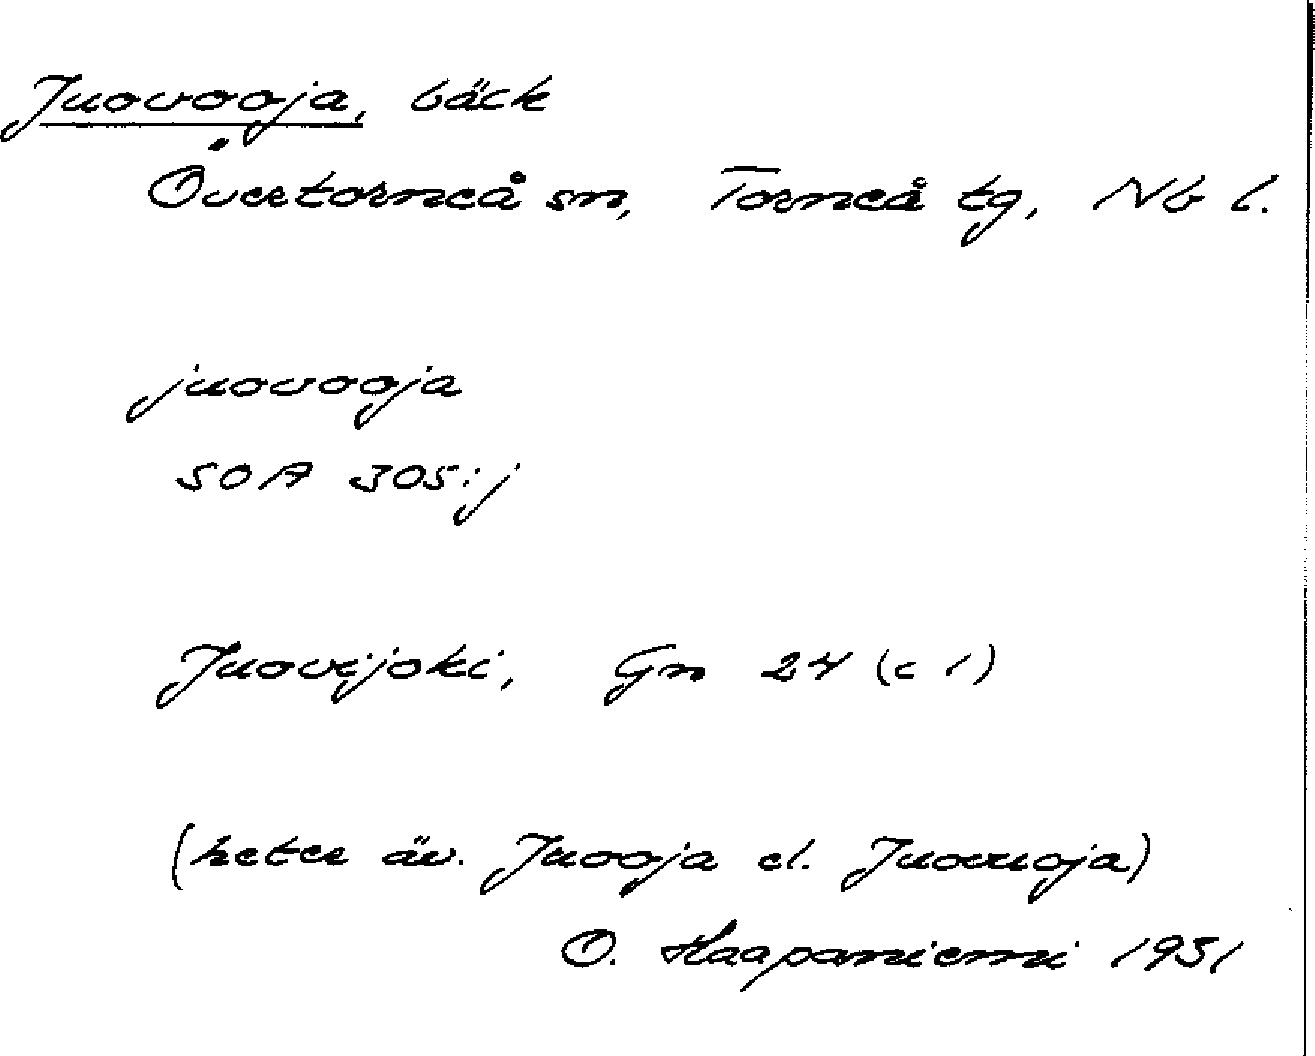 Juovooja, bäck
Övertorneå sn, Torneå tg, Nb l.
juovooja
SOA 305:j
Juovijoki, Gn 24 (c 1)
(heter äv. Juooja el. Juovuoja)
O. Haapaniemi 1951